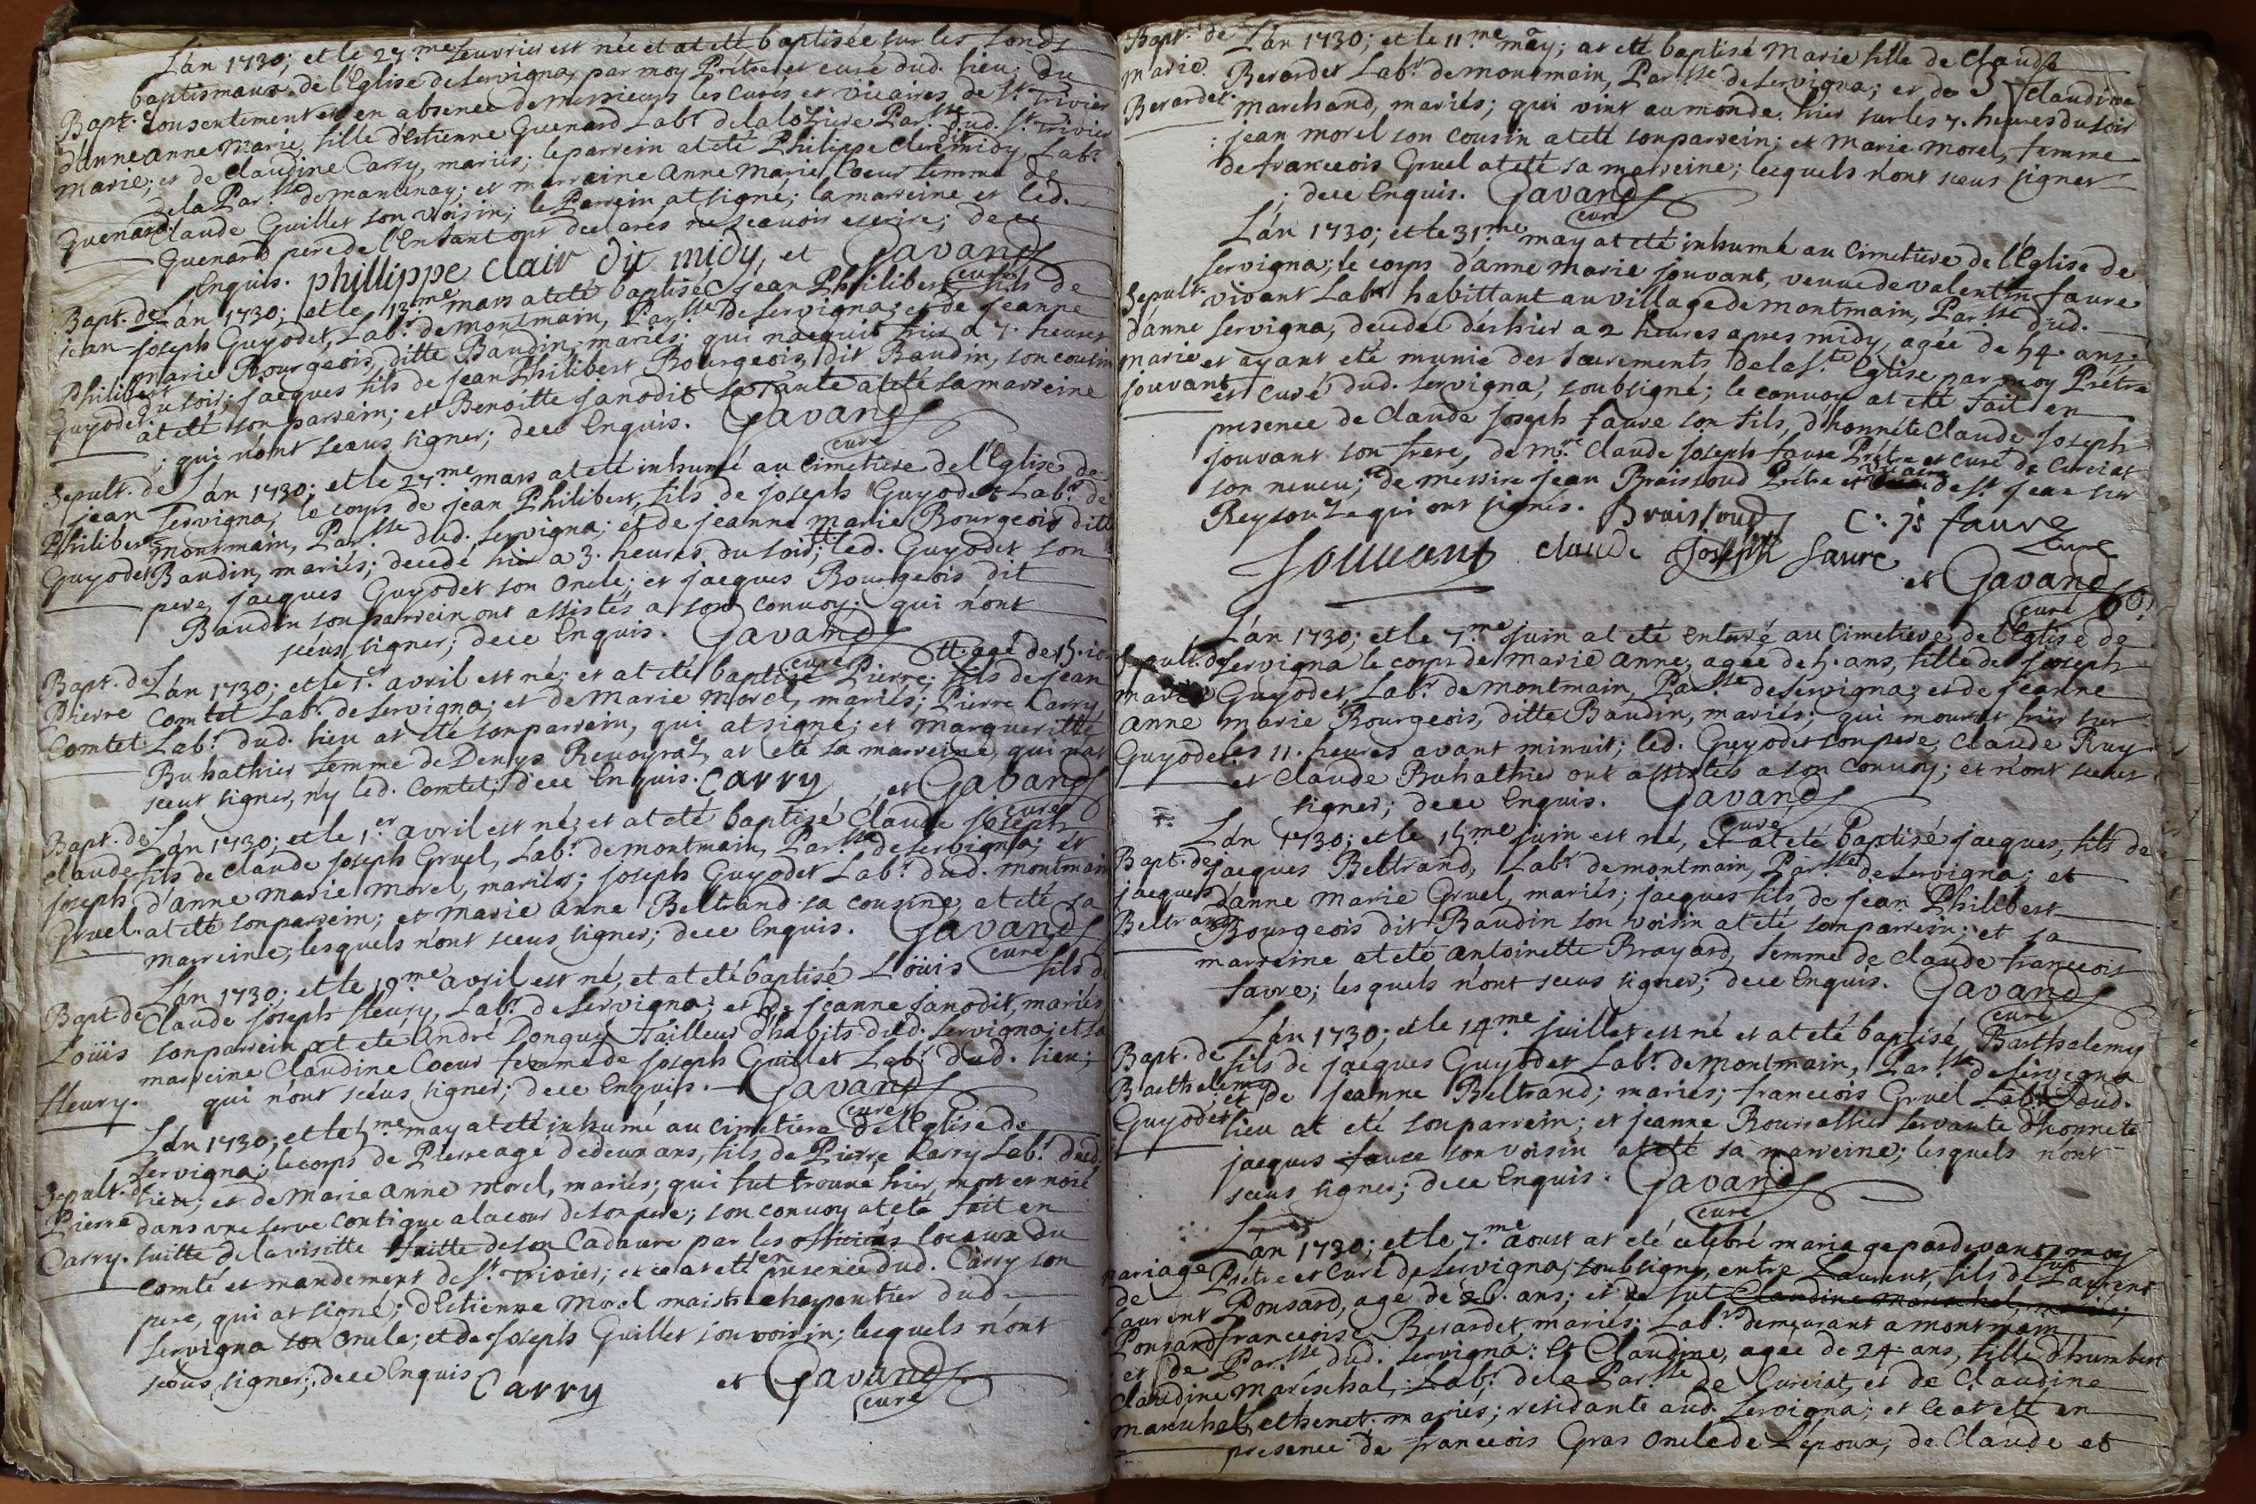 L'án 1730; et le 27.me feuvrier est née et at eté baptisée sur les fonds
baptismaux de l'Eglise de Servigna, par moy Prêtre et curé dud. lieu; du
Bapt. consentement et en absence de messieurs les curés et vicaires de St. Trivier
d'Anne anne Marie, fille d'Estienne Guenard Labr. de la loziere Par.sse dud. St. Trivier
Marie; et de Claudine Carry, mariés; le parrein at eté Philippe Clermidy, Labr.
de la Par.sse de mantenay; et marreine anne Marie Coeur femme de
Guenard. Claude Guillet son voisin; le Parrein at signé; la marreine et led.
Guenard pere de l'Enfant ont declarés ne sçavoir escrire; de ce
Enquis. phillippe clair dit midy, et Gavand curé
Bapt. de L'án 1730; et le 13.me mars at eté baptisé jean Philibert, fils de
jean joseph Guyodet, Labr. de montmain, Par.sse de Servigna; et de jeanne
marie Bourgeois, ditte Baudin, mariés; qui nacquit hier a 7. heures
Philibert du soir; jacques fils de jean Philibert Bourgeois, dit Baudin, son cousin
Guyodet. at eté son parrein; et Benoitte janodit sa tante at eté sa marreine
; qui n'ont sceus signer; de ce Enquis. Gavand curé
Sepult. de L'án 1730; et le 27.me mars at eté inhumé au cimetiere de l'Eglise de
jean Servigna, le corps de jean Philibert, fils de joseph Guyodet Labr. de
Philibert montmain, Par.sse dud. Servigna; et de jeanne marie Bourgeois ditte
Guyodet Baudin, mariés; decedé hier a 3. heures du soir; tt led. Guyodet son
pere, jacques Guyodet son oncle; et jacques Bourgeois dit
Baudin son parrein ont assistés a son convoy. qui n'ont
scéus signer; de ce Enquis. Gavand curé tt. agé de 15. jo
Bapt. de L'án 1730; et le 1.er avril est né; et at eté baptisé Pierre; fils de jean
Pierre Comtet Labr. de Servigna; et de Marie Morel, mariés; Pierre Carry
Comtet Labr. dud. lieu at eté son parrein, qui at signé; et margueritte
Buhathier femme de Denys Revoyrat, at eté sa marreine qui n'at
sceut signer, ny led. Comtet; de ce Enquis. Carry, et Gavand curé
Bapt. de L'án 1730; et le 1.er avril est né; et at eté baptisé Claude joseph
Claude fils de Claude joseph Gruel, Labr. de montmain, Par.sse de Servigna; et
joseph d'anne Marie Morel, mariés; joseph Guyodet Labr. dud. montmain
Gruel. at eté son parrein; et Marie Anne Beltrand sa cousine, at eté sa
marreine; lesquels n'ont sceus signer; de ce Enquis. Gavand curé
L'án 1730; et le 19.me avril est né, et at eté baptisé Loüis fils de
Bapt. de Claude joseph fleury, Labr. de Servigna; et de jeanne janodit, mariés
Loüis son parrein at eté André Donguy Tailleur d'habits dud. Servigna; et sa
marreine Claudine Coeur femme de joseph Guillet Labr. dud. lieu;
fleury. qui n'ont scéus signer; de ce Enquis. Gavand curé
L'án 1730; et le 5.me may at eté inhumé au cimetiere de l'Eglise de
Servigna, le corps de Pierre agé de deux ans, fils de Pierre Carry Labr. dud.
Sepult. de lieu; et de Marie anne Morel, mariés; qui fut trouvé hier mort et noié
Pierre dans une serve contigue a la cour de son pere; son convoy at eté fait en
Carry. suitte de la visitte faitte de son Cadavre par les officiers locaux du
comté et mandement de St. Trivier; et ce at eté en presence dud. Carry son
pere, qui at signé; d'Estienne Morel maistre charpentier dud.
Servigna son oncle; et de joseph Guillet son voisin; lesquels n'ont
scéus signer; de ce Enquis Carry et Gavand curé
Bapt. de L'án 1730; et le 11.me may; at eté baptisé Marie fille de Claude
marie Berardet Labr. de montmain, Par.sse de Servigna; et de Claudine
Berardet. Marchand, mariés; qui vint au monde hier sur les 7. heures du soir
; jean morel son cousin at eté son parrein; et Marie Morel, femme
de francois Gruel at eté sa marreine; lesquels n'ont sceus signer
; de ce Enquis. Gavand curé
L'án 1730; et le 31.me may at eté inhumé au Cimetiere de l'Eglise de
Servigna, le corps d'anne Marie jouvant, veuve de valentin faure
Sepult. vivant Labr. habittant au village de montmain, Par.sse dud.
d'anne Servigna, decedée dés hier a 2 heures apres midy, agée de 54. ans;
marie et ayant eté munie des sacrements de la S.te Eglise par moy Prêtre
jouvant et curé dud. Servigna, soubsigné; le convoy at eté fait en
presence de Claude joseph faure son fils, d'honnéte Claude joseph
jouvant son frere, de mr. Claude joseph faure Prêtre et curé de Curciat
son neveu; de messire jean Braissoud Prêtre et vicaire de St. jean sur
Reyssouze qui ont signés. Braissoud C. js faure curé
Jouuant claude joseph faure et Gavand curé
L'án 1730; et le 7.me juin at eté enterré au cimetiere de l'Eglise de
Sepult. de Servigna le corps de Marie Anne, agée de 5. ans, fille de joseph
marie Guyodet, Labr. de montmain, Par.sse de Servigna; et de jeanne
anne marie Bourgeois, ditte Baudin, mariés; qui mourut hier sur
Guyodet. les 11. heures avant minuit; led. Guyodet son pere, Claude Ruy
et Claude Buhathier ont assistés a son convoy; et n'ont sceus
signer; de ce Enquis. Gavand curé
L'án 1730; et le 15.me juin est né, et at eté baptisé jacques, fils de
Bapt. de jacques Beltrand, Labr. de montmain, Par.sse de Servigna; et
jacques d'anne Marie Gruel, mariés; jacques fils de jean Philibert
Beltrand Bourgeois dit Baudin son voisin at eté son parrein; et sa
marreine at eté Antoinette Brayard, femme de Claude francois
favre; lesquels n'ont sceus signer; de ce Enquis. Gavand curé
L'án 1730; et le 14.me juillet est né et at eté baptisé Barthelemy
Bapt. de fils de jacques Guyodet Labr. de montmain, Par.sse de Servigna
Barthelemy et de jeanne Beltrand; mariés; francois Gruel Labr. dud.
Guyodet lieu at eté son parrein; et jeanne Boursattier servante d'honnéte
jacques faure son voisin at eté sa marreine; lesquels n'ont
sceus signer; de ce Enquis. Gavand curé
L'án 1730; et le 7.me aoust at eté celebré mariage pardevant moy
mariage Prêtre et curé de Servigna, soubsigné, entre Laurent, fils de fut Laurent
de Laurent Ponsard, agé de 26. ans; et de fut Claudine Mareschal, mariés;
Ponsard francoise Berardet, mariés; Labr. demeurant a montmain
et de Par.sse dud. Servigna: Et Claudine, agée de 24 ans, fille d'humbert
Claudine Maréschal, Labr. de la Par.sse de Curciat, et de Claudine
Mareschal. Thenet mariés; residante aud. Servigna; et ce at eté en
presence de francois Gras oncle de L'epoux, de Claude et